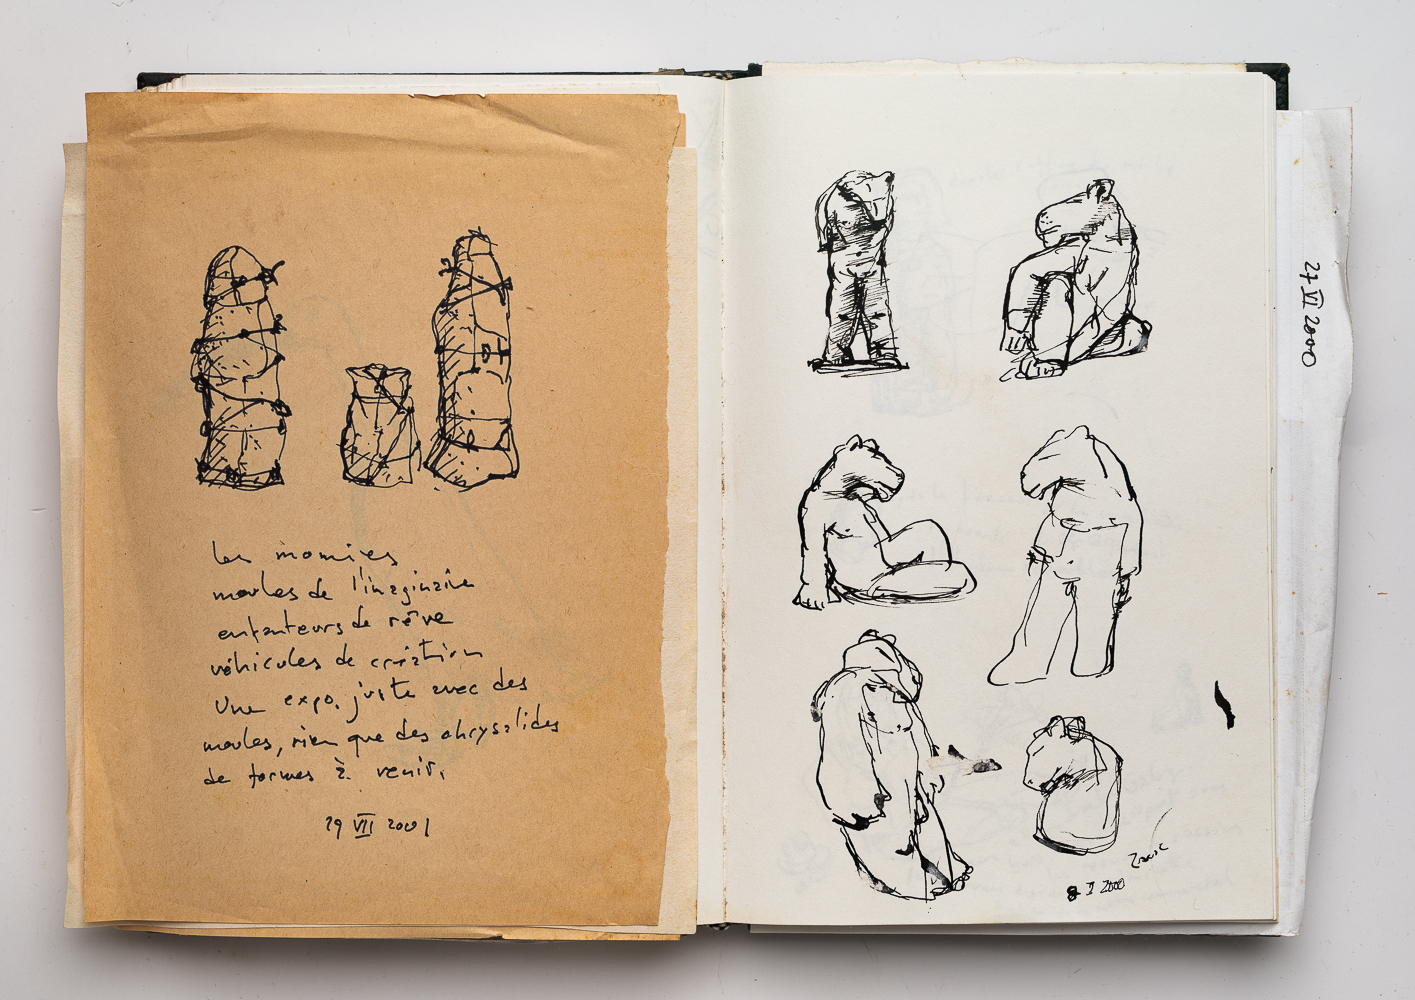 les momies
moules de l'imaginaire
enfanteurs de rêve
véhicules de création
Une expo. juste avec des
moules, rien que des chrysalides
de formes à venir.
29 VII 2001
8 I 2000
27 VI 2000